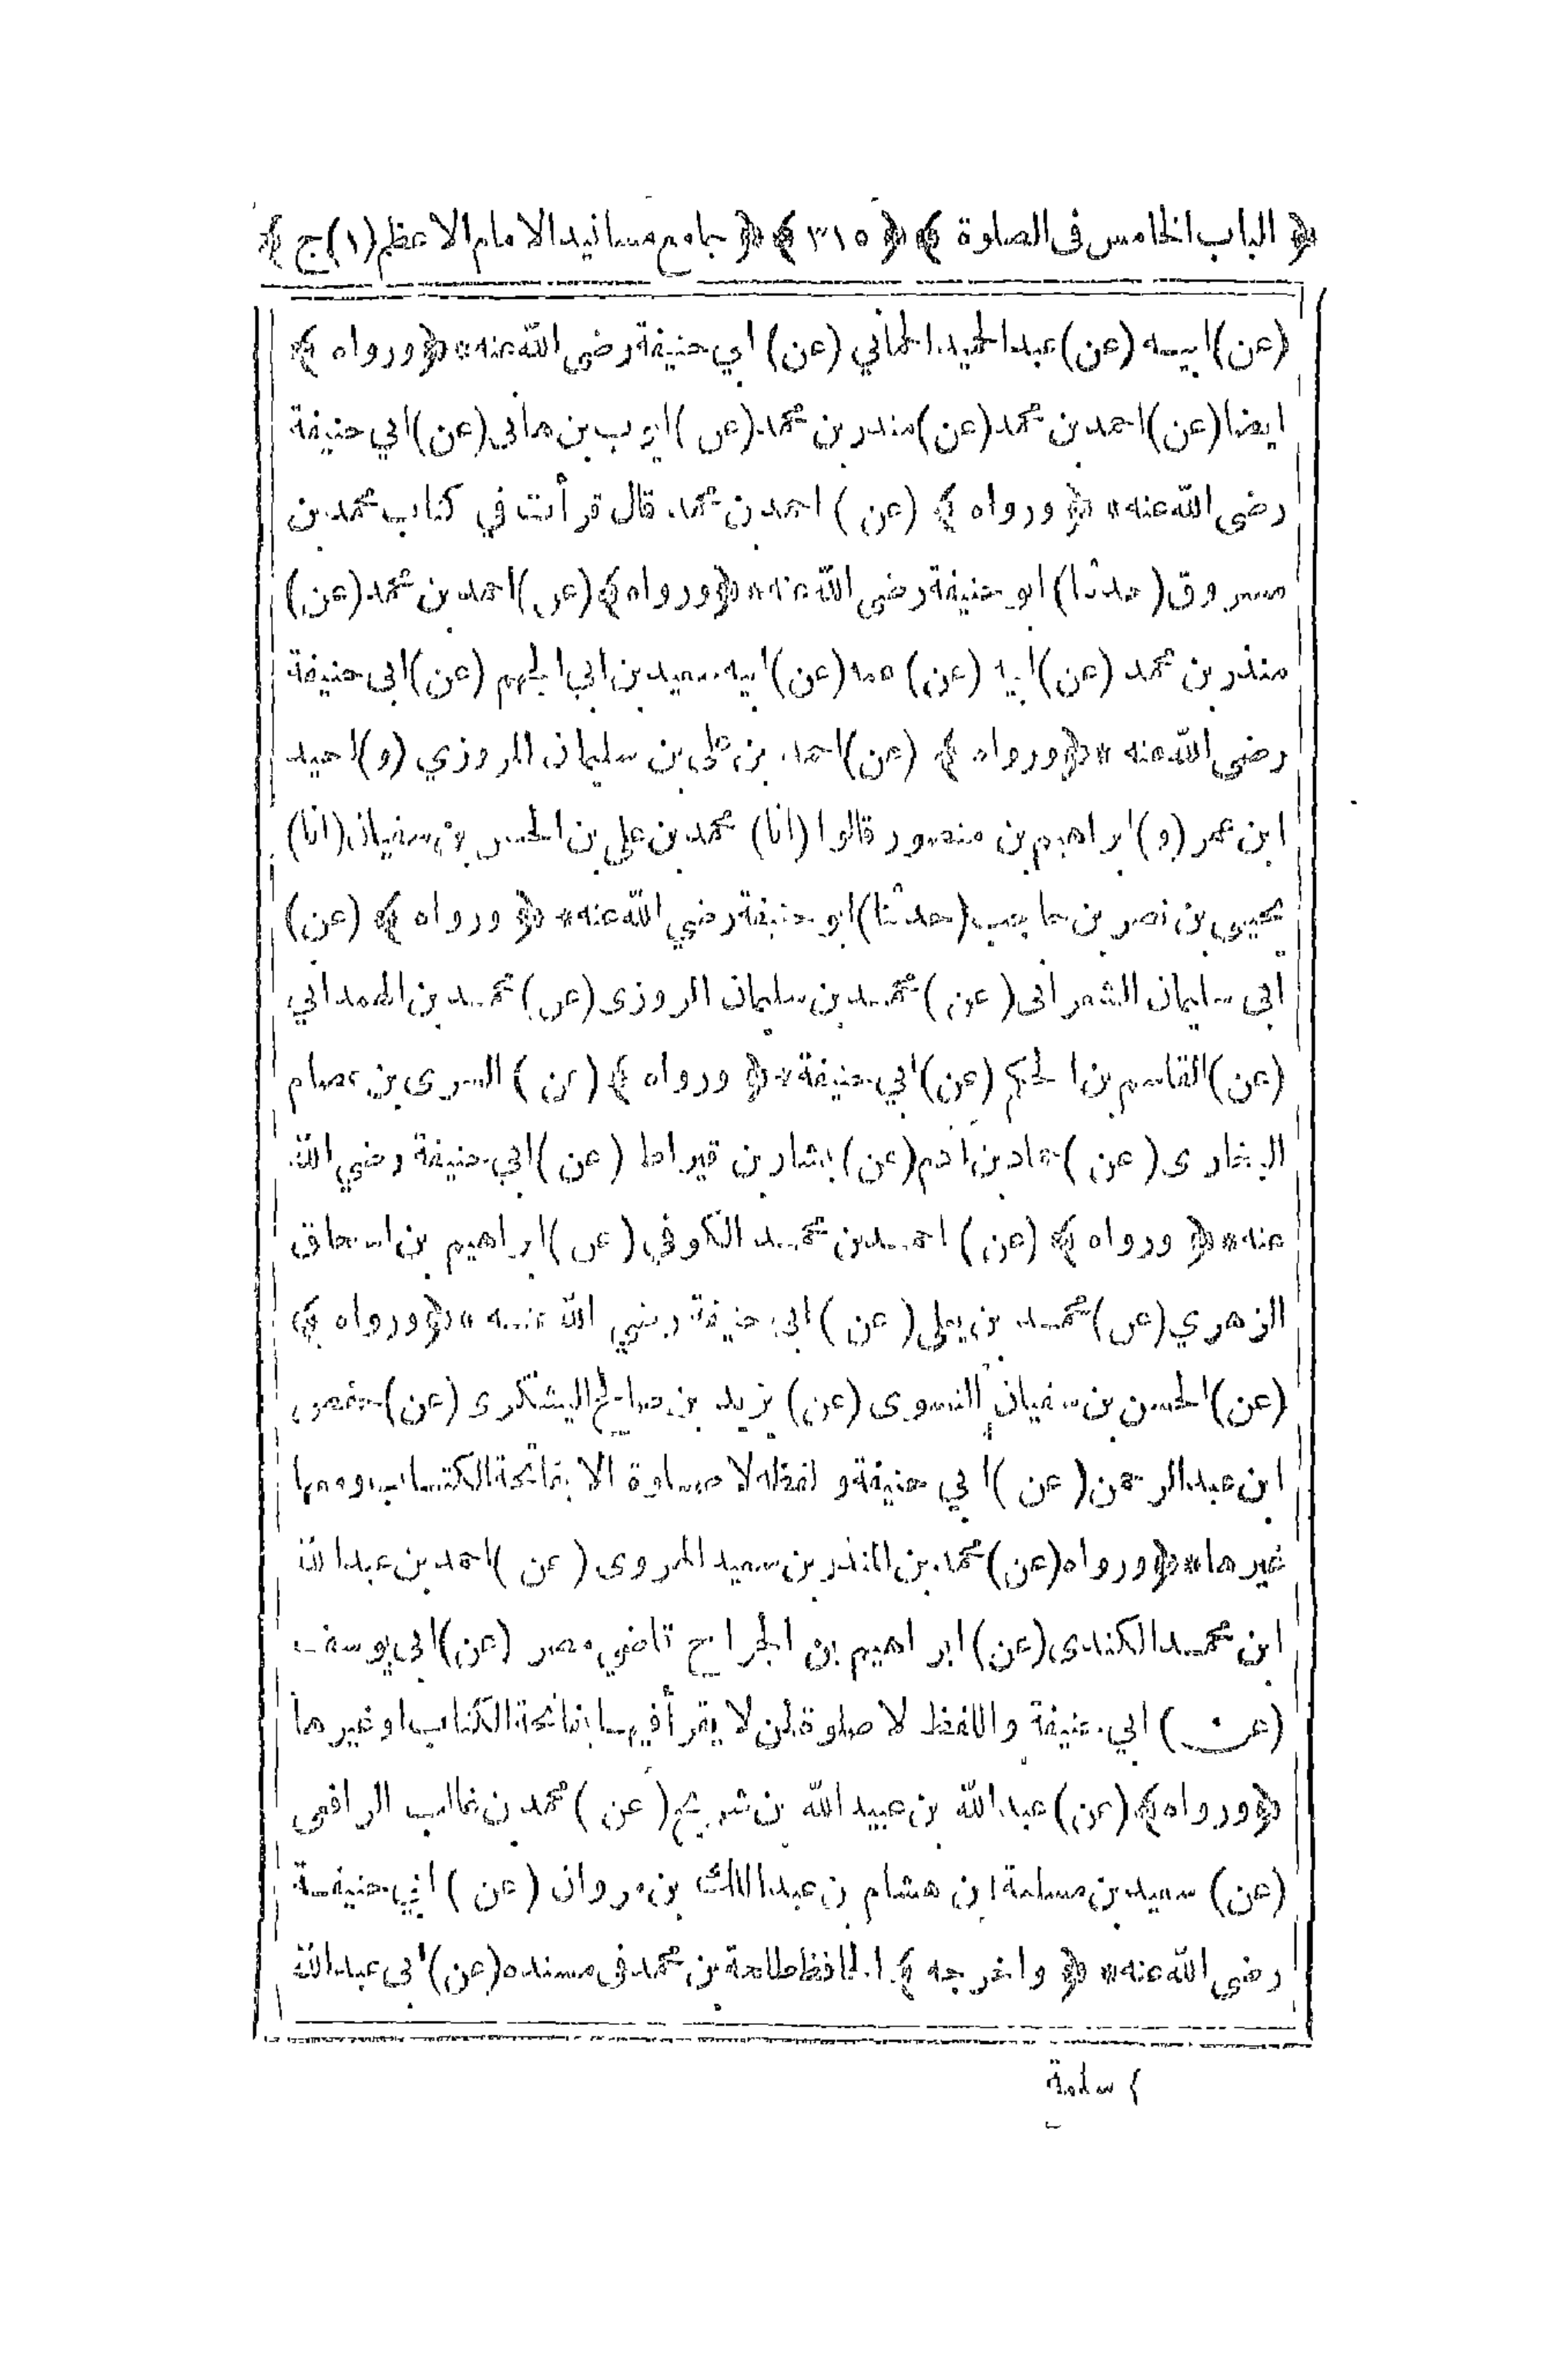 ﴿ الباب الخامس فى الصلوة ﴾ ﴿ ٣١٥ ﴾ ﴿ جامع مسانيد الامام الاعظم (١) ج ﴾
(عن) ابيـه (عن) عبد الحميد الحماني (عن) ابي حنيفة رضى الله عنه * ﴿ ورواه ﴾
ايضا (عن) احمد بن محمد (عن) منذر بن محمد (عن) ايوب بن هانى (عن) ابي حنيفة
رضى الله عنه * ﴿ ورواه ﴾ (عن) احمد بن محمد قال قرأت في كتاب محمد بن
مسروق (حدثنا) ابو حنيفة رضى الله عنه * ﴿ ورواه ﴾ (عن) احمد بن محمد (عن)
منذر بن محمد (عن) ابيه (عن) عمه (عن) ابيه سعيد بن ابي الجهم (عن) ابى حنيفة
رضى الله عنه * ﴿ ورواه ﴾ (عن) احمد بن على بن سليمان المروزي (و) احيد
ابن عمر (و) ابراهيم بن منصور قالوا (انا) محمد بن علي بن الحسن بن سفيان (انا)
يحيى بن نصر بن حاجب (حدثنا) ابو حنيفة رضي الله عنه * ﴿ ورواه ﴾ (عن)
ابى سليمان الشعرانى (عن) محمـد بن سليمان المروزى (عن) محمـد بن الهمداني
(عن) القاسم بن الحكم (عن) ابي حنيفة * ﴿ ورواه ﴾ (عن) السرى بن عصام
البخارى (عن) حماد بن ادم (عن) بشار بن قيراط (عن) ابي حنيفة رضي الله
عنه * ﴿ ورواه ﴾ (عن) احمـد بن محمـد الكوفي (عن) ابراهيم بن اسحاق
الزهري (عن) محمـد بن يعلى (عن) ابى حنيفة رضي الله عنـه * ﴿ ورواه ﴾
(عن) الحسن بن سفيان النسوى (عن) يزيد بن صالح اليشكرى (عن) حفص
ابن عبد الرحمن (عن) ابي حنيفة و لفظه لا صلوة الا بفاتحة الكتاب ومعها
غيرها * ﴿ ورواه (عن) محمد بن المنذر بن سعيد الهروى (عن) احمد بن عبد الله
ابن محمـد الكندى (عن) ابراهيم بن الجراح قاضي مصر (عن) ابى يوسف
(عن) ابي حنيفة واللفظ لا صلوة لمن لا يقرأ فيهـا بفاتحة الكتاب او غيرها
﴿ ورواه ﴾ (عن) عبد الله بن عبيد الله بن شريح (عن) محمد بن غالب الرافقى
(عن) سعيد بن مسلمة ابن هشام بن عبد الملك بن مروان (عن) ابي حنيفـة
رضى الله عنه * ﴿ واخرجه ﴾ الحافظ طلحة بن محمد فى مسنده (عن) ابى عبد الله
سلمة